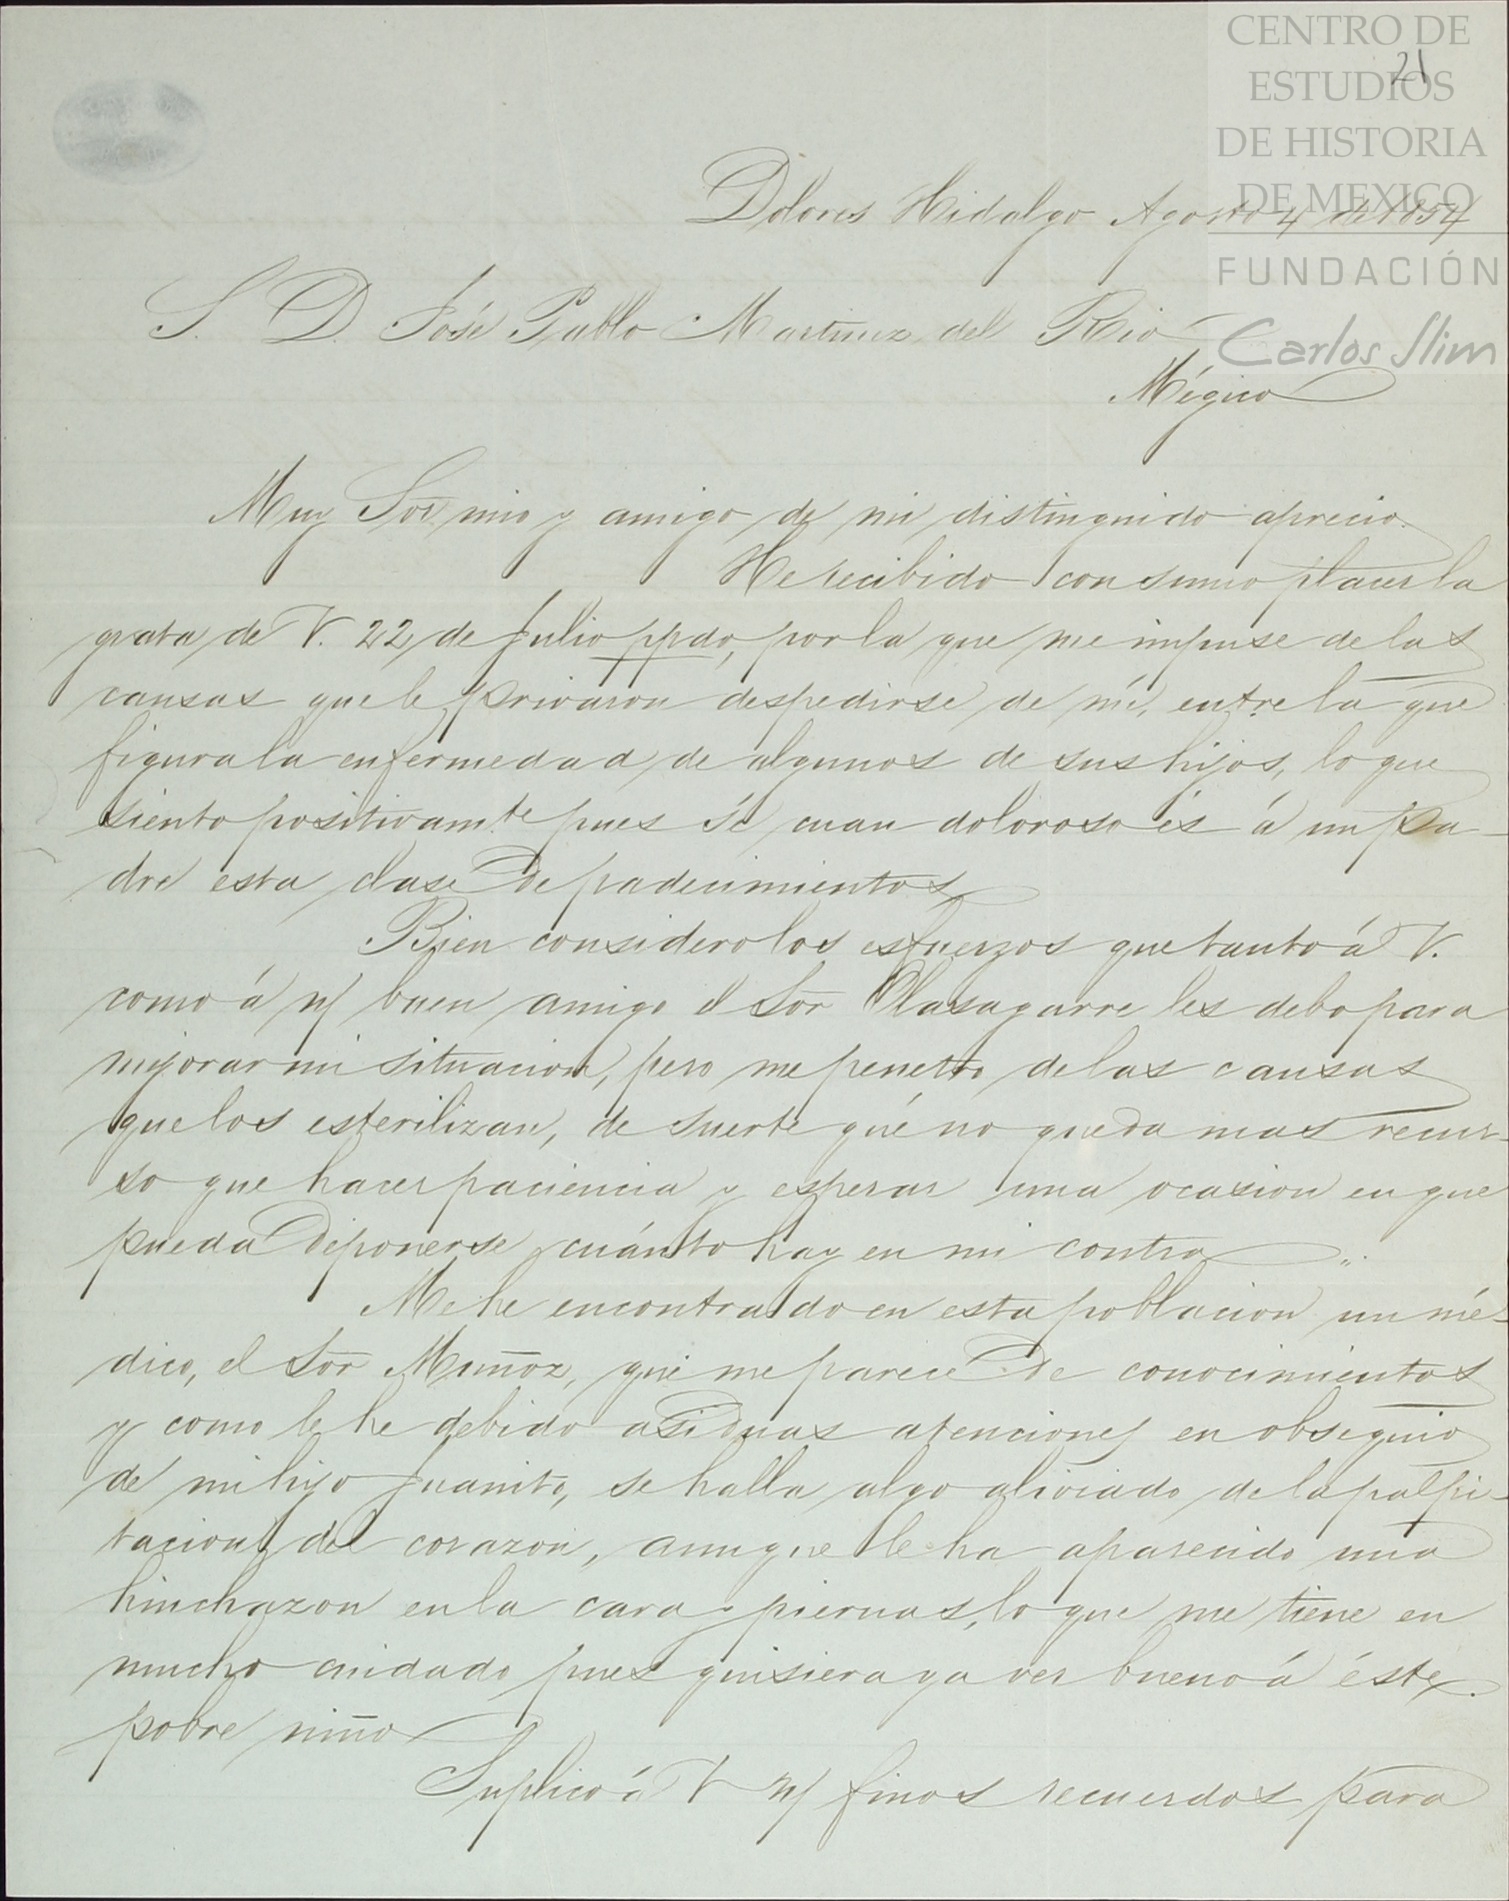 CENTRO DE
ESTUDIOS
DE HISTORIA
DE MEXICO
FUNDACIÓN
Carlos Slim
21
Dolores Hidalgo Agosto 4 de 1854
S. D. José Pablo Martinez del Rio
Mégico
Muy Sor mio y amigo de mi distinguido aprecio.
He recibido con sumo placer la
grata de V. 22 de Julio ppdo, por la que me impuse de las
causas que le privaron despedirse de mí, entre la que
figura la enfermedad de algunos de sus hijos, lo que
siento positivamte pues sé cuan doloroso és á un pa-
dre esta clase de padecimientos
Bien considero los esfuerzos que tanto á V.
como á m/ buen amigo el Sor Olasagarre les debo para
mejorar mi situacion, pero me penetro de las causas
que los esterilizan, de suerte qué no queda mas recur-
so que hacer paciencia y esperar una ocasion en que
pueda deponerse cuánto hay en mi contra
Me he encontrado en esta poblacion un mé-
dico, el Sor Muñoz, que me parece de conocimientos
y como le he debido asiduas atenciones en obsequio
de mi hijo Juanito, se halla algo aliviado de la palpi-
tacion del corazon, aunque le ha aparecido una
hinchazon en la cara y piernas, lo que me tiene en
mucho cuidado pues quisiera ya ver bueno á éste
pobre niño
Suplico á V m/ finos recuerdos para